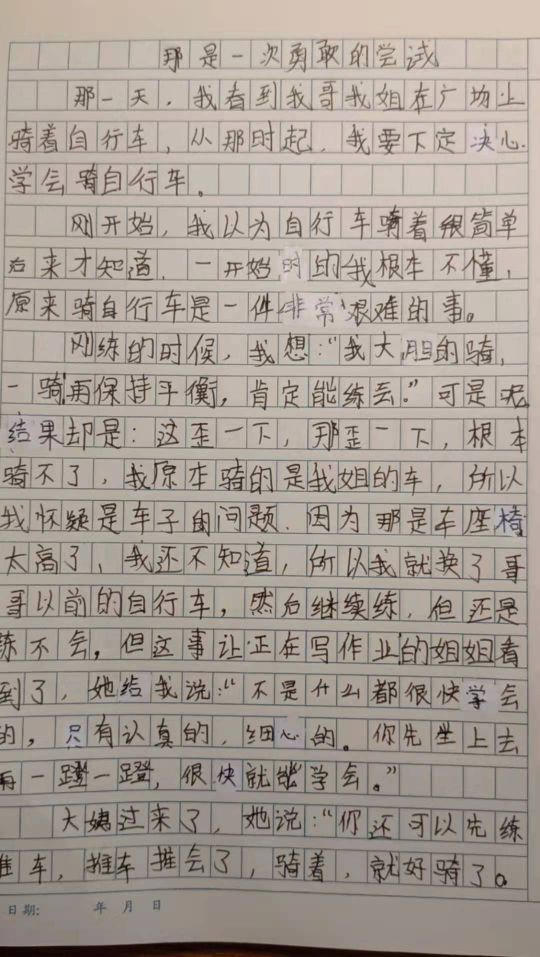 那是一次勇敢的尝试
那一天，我看到我哥我姐在广场上
骑着自行车，从那时起，我要下定决心
学会骑自行车。
刚开始，我以为自行车骑着很简单
后来才知道，一开始时的我根本不懂，
原来骑自行车是一件非常艰难的事。
刚练的时候，我想：“我大胆的骑，
一骑再保持平衡，肯定能练会。”可是呢
结果却是：这歪一下，那歪一下，根本
骑不了，我原本骑的是我姐的车，所以
我怀疑是车子自问题．因为那是车座椅
太高了，我还不知道，所以我就换了哥
哥以前的自行车，然后继续练，但还是
练不会，但这事让正在写作业的姐姐看
到了，她给我说：“不是什么都很快学会
的，只有认真的，细心的。你先坐上去
再一蹬一蹬，很快就能学会。”
大姨过来了，她说：“你还可以先练
推车，推车推会了，骑着，就好骑了。
日期： 年 月 日